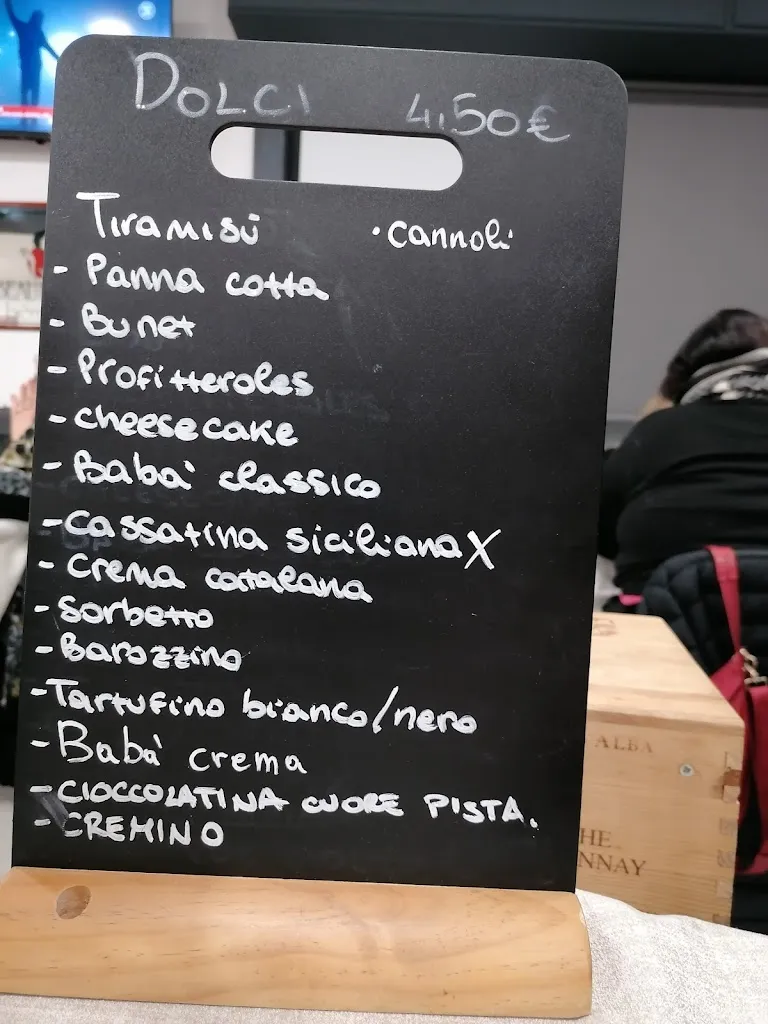 DOLCI 4,50€
Tiramisù ·cannoli
- Panna cotta
- Bunet
- Profitteroles
- cheesecake
- Babà classico
- cassatina siciliana X
- crema catalana
- sorbetto
- Barozzino
- Tartufino bianco/nero
- Babà crema
- CIOCCOLATINA CUORE PISTA.
- CREMINO
ALBA
HE
NNAY